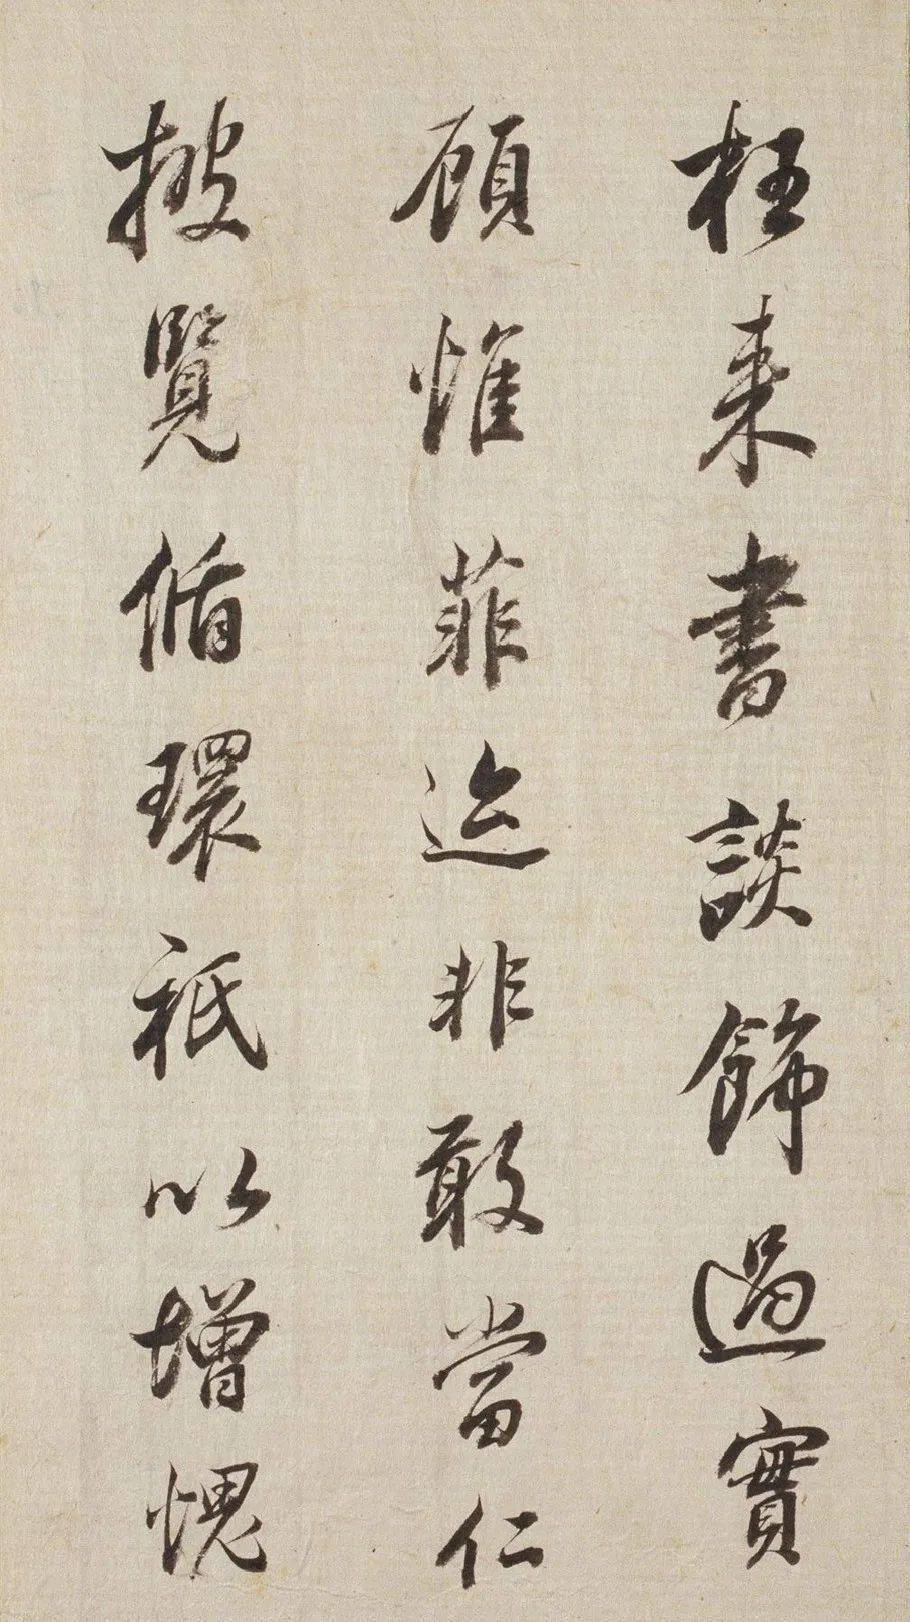 枉来書談飾過實
顧惟菲迹非敢當仁
披覽循環祇以增愧